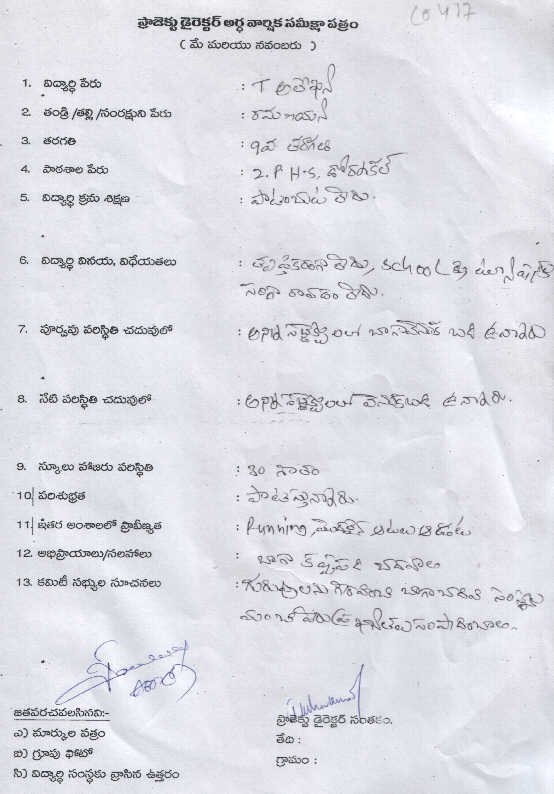 CO 417
ప్రాజెక్టు డైరెక్టర్ అర్ధ వార్షిక సమీక్షా పత్రం
( మే మరియు నవంబరు )
1. విద్యార్థి పేరు : T
2. తండ్రి /తల్లి /సంరక్షుని పేరు :
3. తరగతి : 9వ తరగతి
4. పాఠశాల పేరు : Z.P H.S, డోర్నకల్
5. విద్యార్థి క్రమ శిక్షణ : పాటించుట లేదు.
6. విద్యార్థి వినయ, విధేయతలు : లేదు, school కు
సరిగా రావడం లేదు.
7. పూర్వపు పరిస్థితి చదువులో : అన్ని సబ్జెక్టులలో బాగా వెనుక బడి ఉన్నాడు
8. నేటి పరిస్థితి చదువులో : అన్ని సబ్జెక్టులలో వెనుకబడి ఉన్నాడు.
9. స్కూలు హాజరు పరిస్థితి : 30 శాతం
10. పరిశుభ్రత : పాటిస్తున్నాడు.
11. ఇతర అంశాలలో ప్రావీణ్యత : Running, ఆటలు ఆడుట
12. అభిప్రాయాలు/సలహాలు : బాగా కష్టపడి చదవాలి
13. కమిటీ సభ్యుల సూచనలు : గురువులను గౌరవించి బాగా చదివి సంస్థకు
మంచి పేరు సంపాదించాలి.
జతపరచవలసినవి:-
ఎ) మార్కుల పత్రం
బి) గ్రూపు ఫోటో
సి) విద్యార్థి సంస్థకు వ్రాసిన ఉత్తరం
ప్రాజెక్టు డైరెక్టర్ సంతకం.
తేది :
గ్రామం :